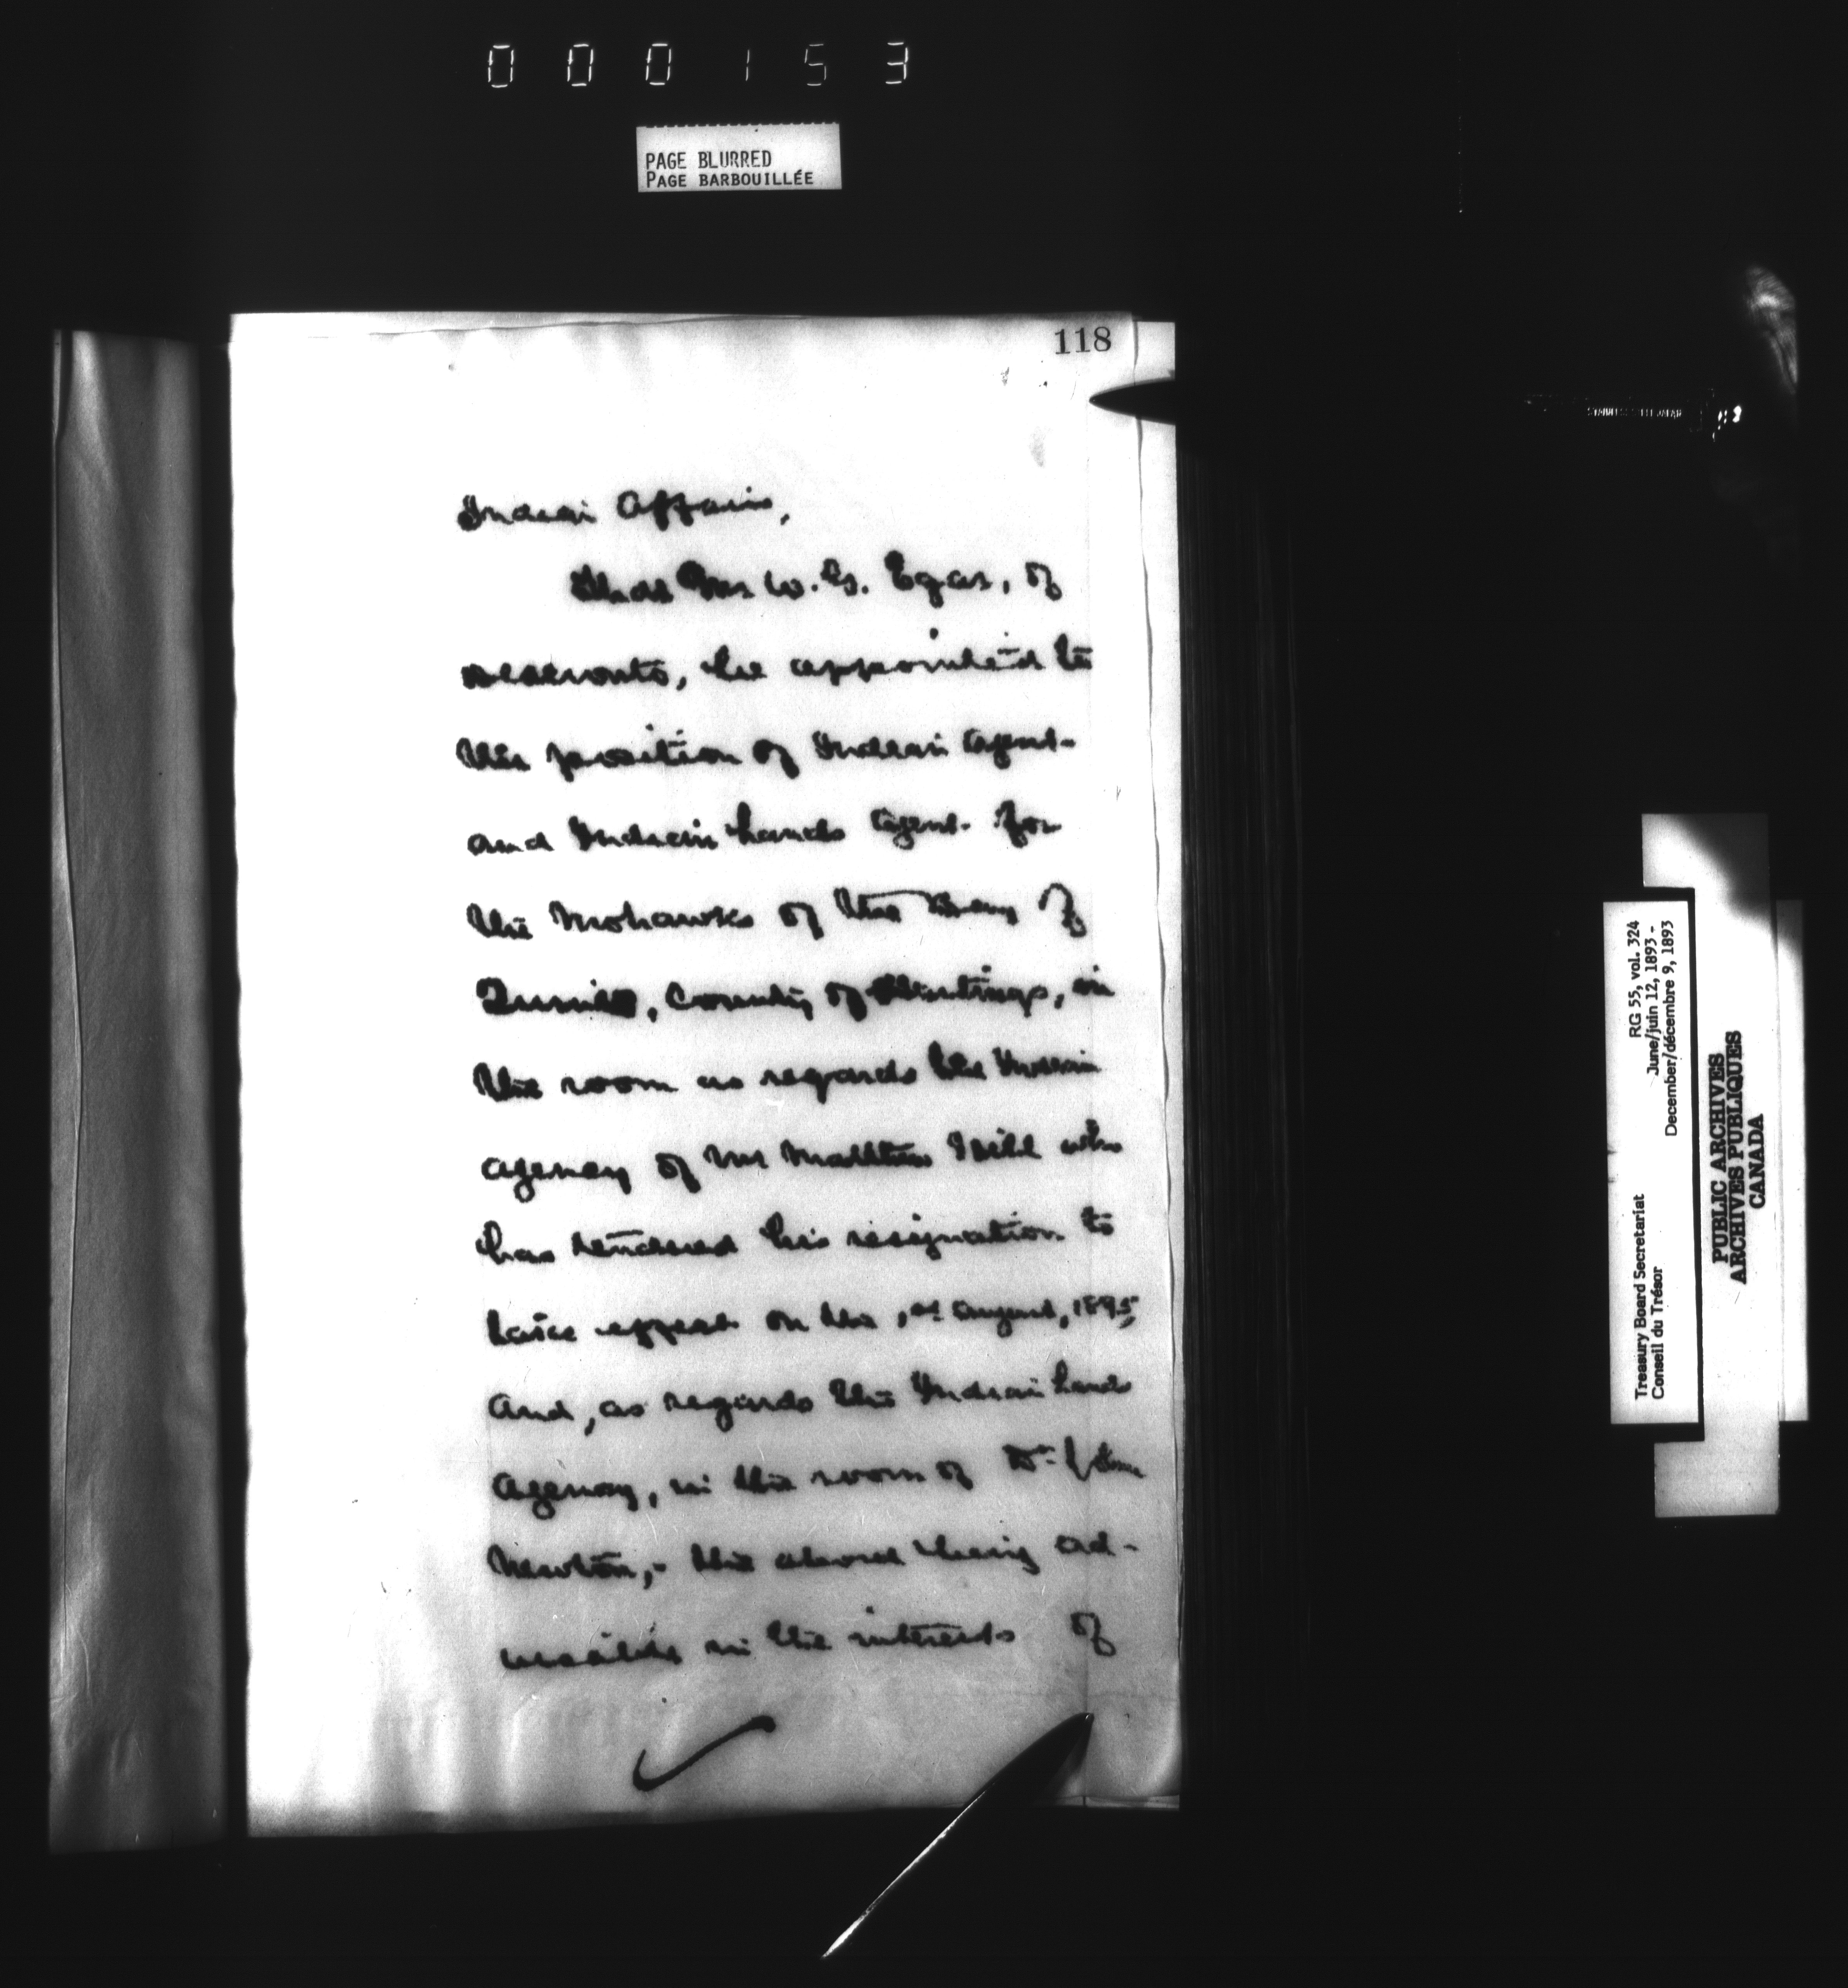 000153
PAGE BLURRED
PAGE BARBOUILLÉE
118
Indian Affairs,
That Mr W. G. Egar, of
Deseronto, be appointed to
the position of Indian Agent
and Indian Lands Agent for
the Mohawks of the Bay of
Quinté, County of Hastings, in
the room as regards the Indian
agency of Mr Matthew Hill who
has tendered his resignation to
take effect on the 1st August, 1893,
and, as regards the Indian Lands
Agency, in the room of Dr. John
Newton,- the above being ad-
visable in the interests of
RG 55, vol. 324
June/juin 12, 1893 -
December/décembre 9, 1893
Treasury Board Secretariat
Conseil du Trésor
PUBLIC ARCHIVES
ARCHIVES PUBLIQUES
CANADA